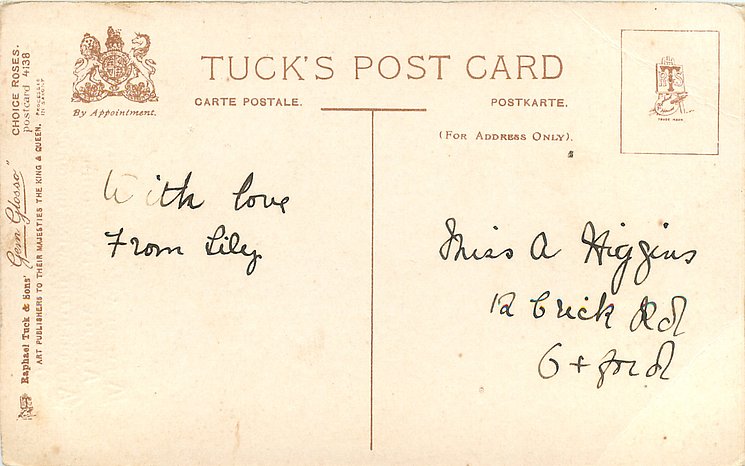 TUCK'S POST CARD
By Appointment.
CARTE POSTALE.
POSTKARTE.
(FOR ADDRESS ONLY).
T
S
TRADE MARK
CHOICE ROSES.
postcard 4138
PROCESSED
IN SAXONY
Raphael Tuck & Sons' "Gem Glosso"
ART PUBLISHERS TO THEIR MAJESTIES THE KING & QUEEN.
With love
From Lily
Miss A Higgins
12 Crick Rd
Oxford